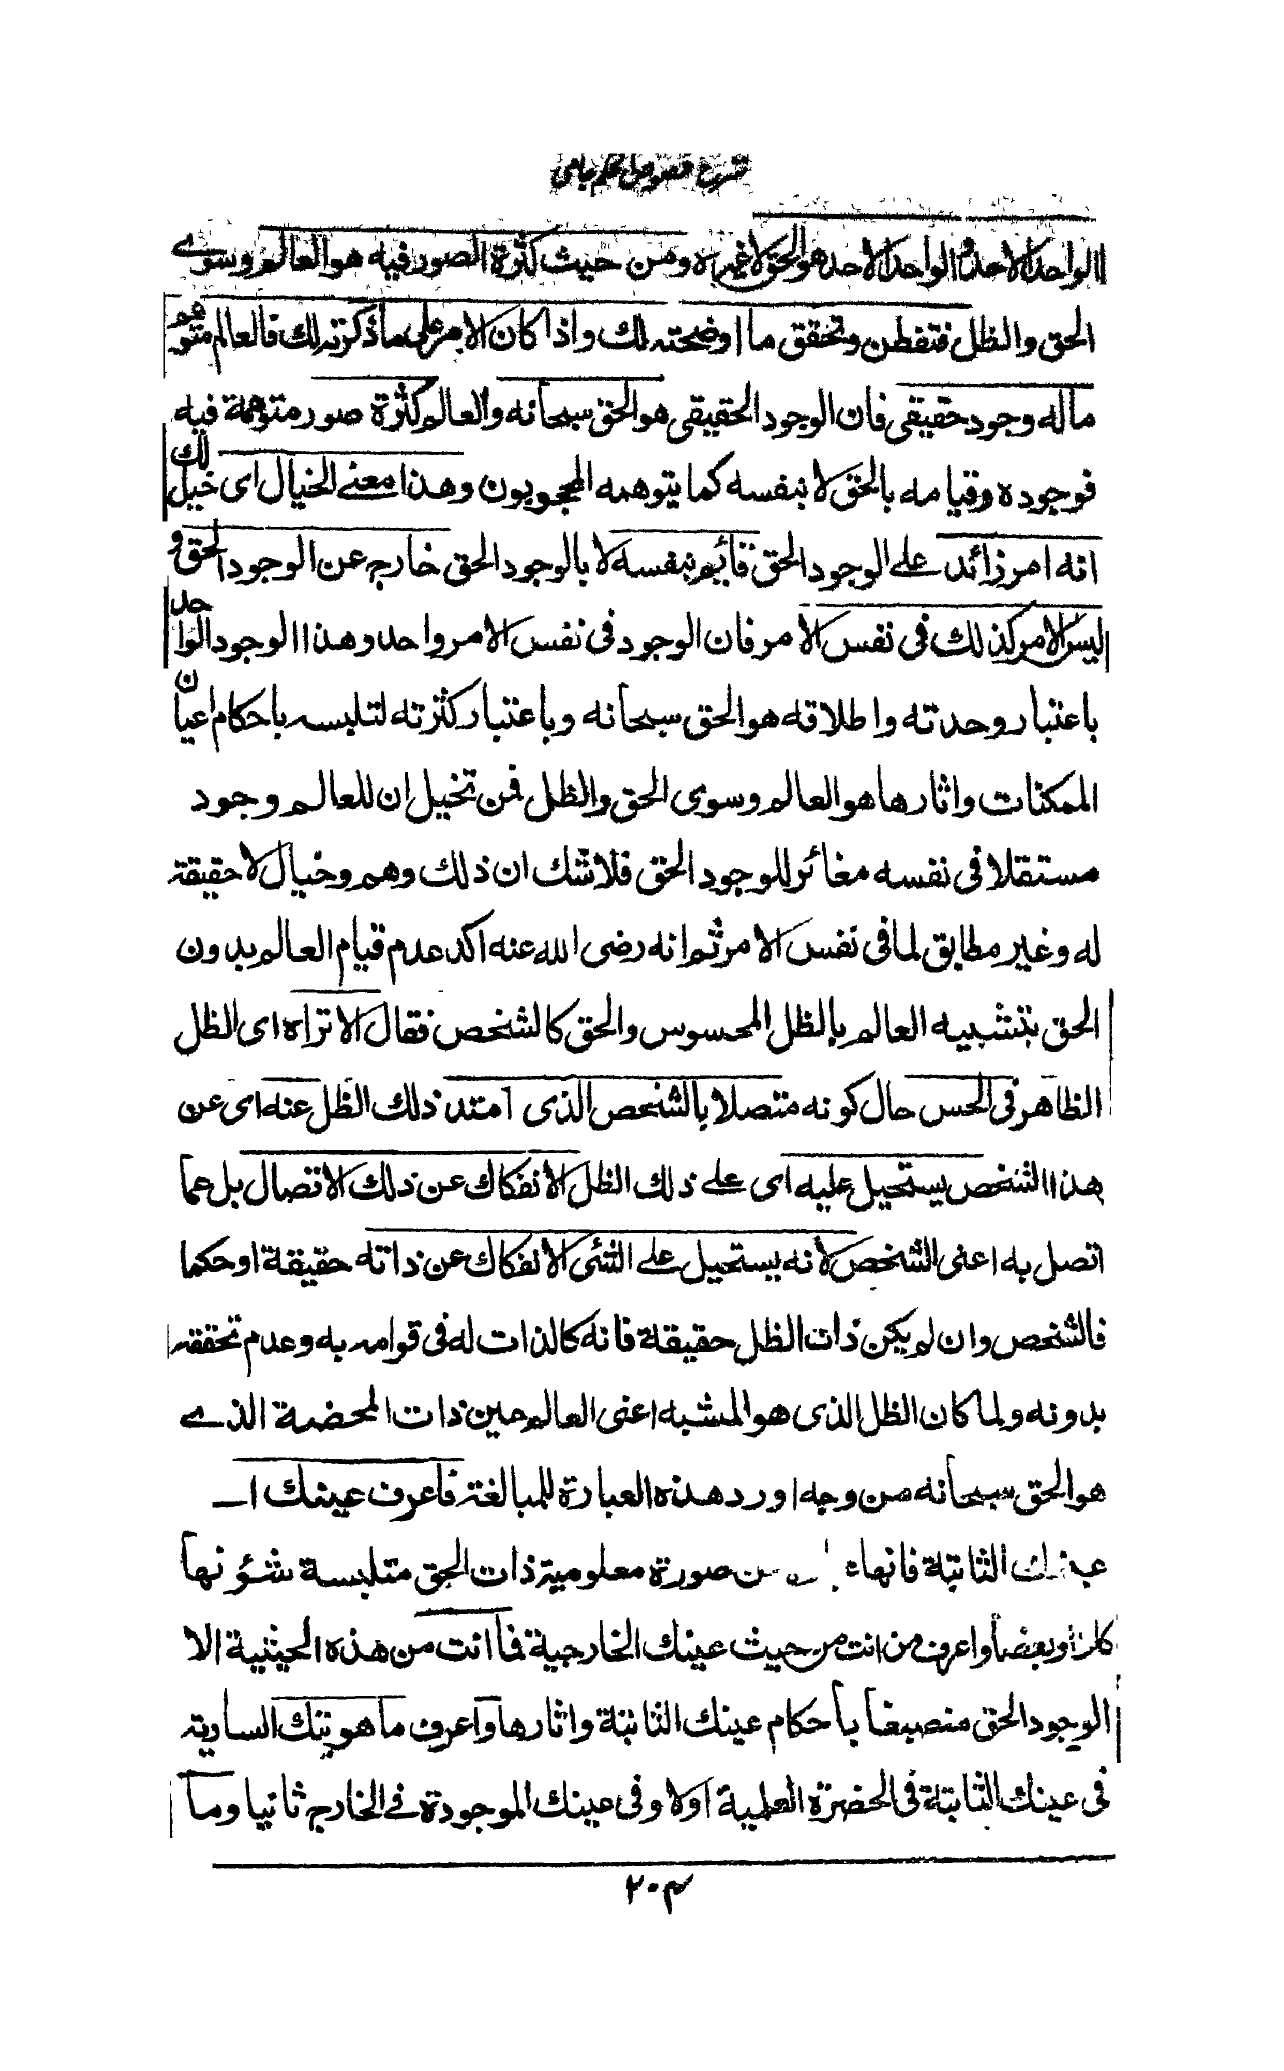 شرح فصوص الحكم جامى
الواحد الاحد والواحد الاحد هو الحق لا غيره ومن حيث كثرة الصور فيه هو العالم وسوى
الحق والظل فتفطن وتحقق ما اوضحته لك واذا كان الامر على ما ذكرته لك فالعالم متوهم
ماله وجود حقيقى فان الوجود الحقيقى هو الحق سبحانه والعالم كثرة صور متوهمة فيه
فوجوده وقيامه بالحق لا بنفسه كما يتوهمه المحجوبون وهذا معنى الخيال اى خيل لك
انه امر زائد على الوجود الحق قائم بنفسه لا بالوجود الحق خارج عن الوجود الحق و
ليس الامر كذلك فى نفس الامر فان الوجود فى نفس الامر واحد وهذا الوجود الواحد
باعتبار وحدته واطلاقه هو الحق سبحانه وباعتبار كثرته لتلبسه باحكام اعيان
الممكنات واثارها هو العالم وسوى الحق والظل فمن تخيل ان للعالم وجود
مستقلا فى نفسه مغائر للوجود الحق فلا شك ان ذلك وهم وخيال لا حقيقة
له وغير مطابق لما فى نفس الامر ثم انه رضى الله عنه اكد عدم قيام العالم بدون
الحق بتشبيه العالم بالظل المحسوس والحق كالشخص فقال الا تراه اى الظل
الظاهر فى الحس حال كونه متصلا بالشخص الذى امتد ذلك الظل عنه اى عن
هذا الشخص يستحيل عليه اى على ذلك الظل الانفكاك عن ذلك الاتصال بل عما
اتصل به اعنى الشخص لانه يستحيل على الشئى الانفكاك عن ذاته حقيقة او حكما
فالشخص وان لم يكن ذات الظل حقيقة فانه كالذات له فى قوامه به وعدم تحققه
بدونه ولما كان الظل الذى هو المشبه اعنى العالم عين ذات المحضة الذى
هو الحق سبحانه من وجه اورد هذه العبارة للمبالغة فاعرف عينك اى
عينك الثابتة فانها صورة معلومية ذات الحق متلبسة شؤنها
كلا او بعضا واعرف من انت من حيث عينك الخارجية فما انت من هذه الحيثية الا
الوجود الحق منصبغا باحكام عينك الثابتة واثارها واعرف ما هويتك السارية
فى عينك الثابتة فى الحضرة العلمية اولا وفى عينك الموجودة فى الخارج ثانيا وما
۲۰۴